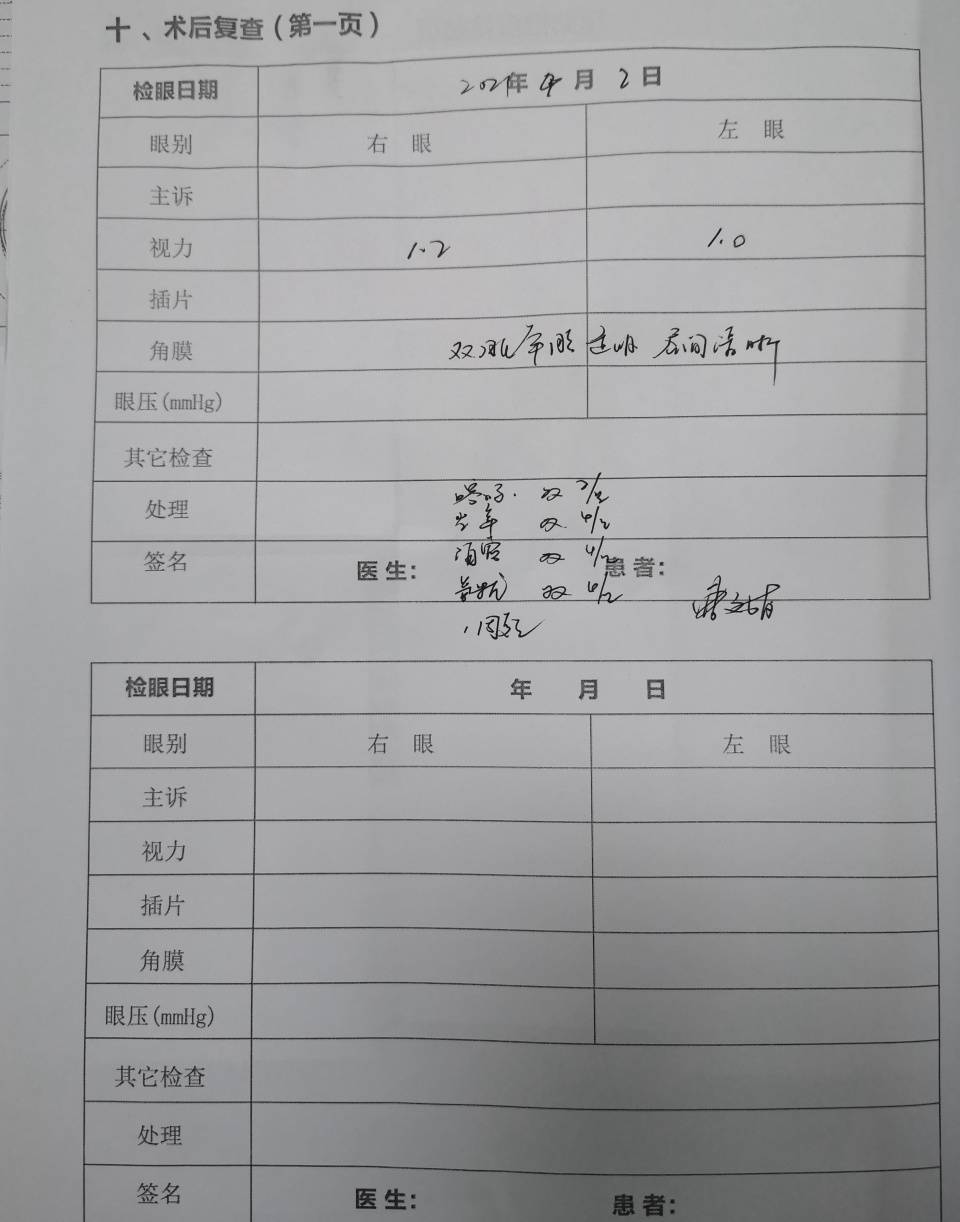 十、术后复查(第一页)
检眼日期 2021年4月2日
眼别 右 眼 左 眼
主诉
视力 1.2 1.0
插片
角膜 双眼角膜透明 层间清晰
眼压(mmHg)
其它检查
处理 双
双
双
签名 医生: 患者:
双
1周复
检眼日期 年 月 日
眼别 右 眼 左 眼
主诉
视力
插片
角膜
眼压(mmHg)
其它检查
处理
签名 医生: 患者: